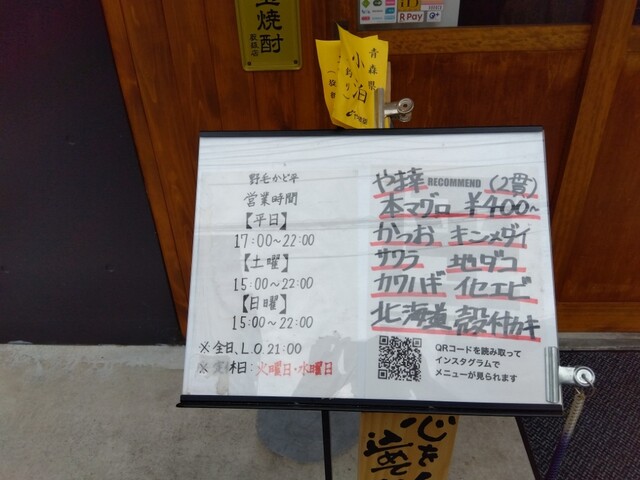 焼酎
取扱店
R Pay
青森県
小泊
営業時間
【平日】
17:00~22:00
【土曜】
15:00~22:00
【日曜】
15:00~22:00
※全日、L.O.21:00
休日:火曜日・水曜日
RECOMMEND
(2貫)
本マグロ ¥400~
かつお キンメダイ
サワラ 地ダコ
カワハギ イセエビ
北海道 殻付カキ
QRコードを読み取って
インスタグラムで
メニューが見られます
心を
込めて